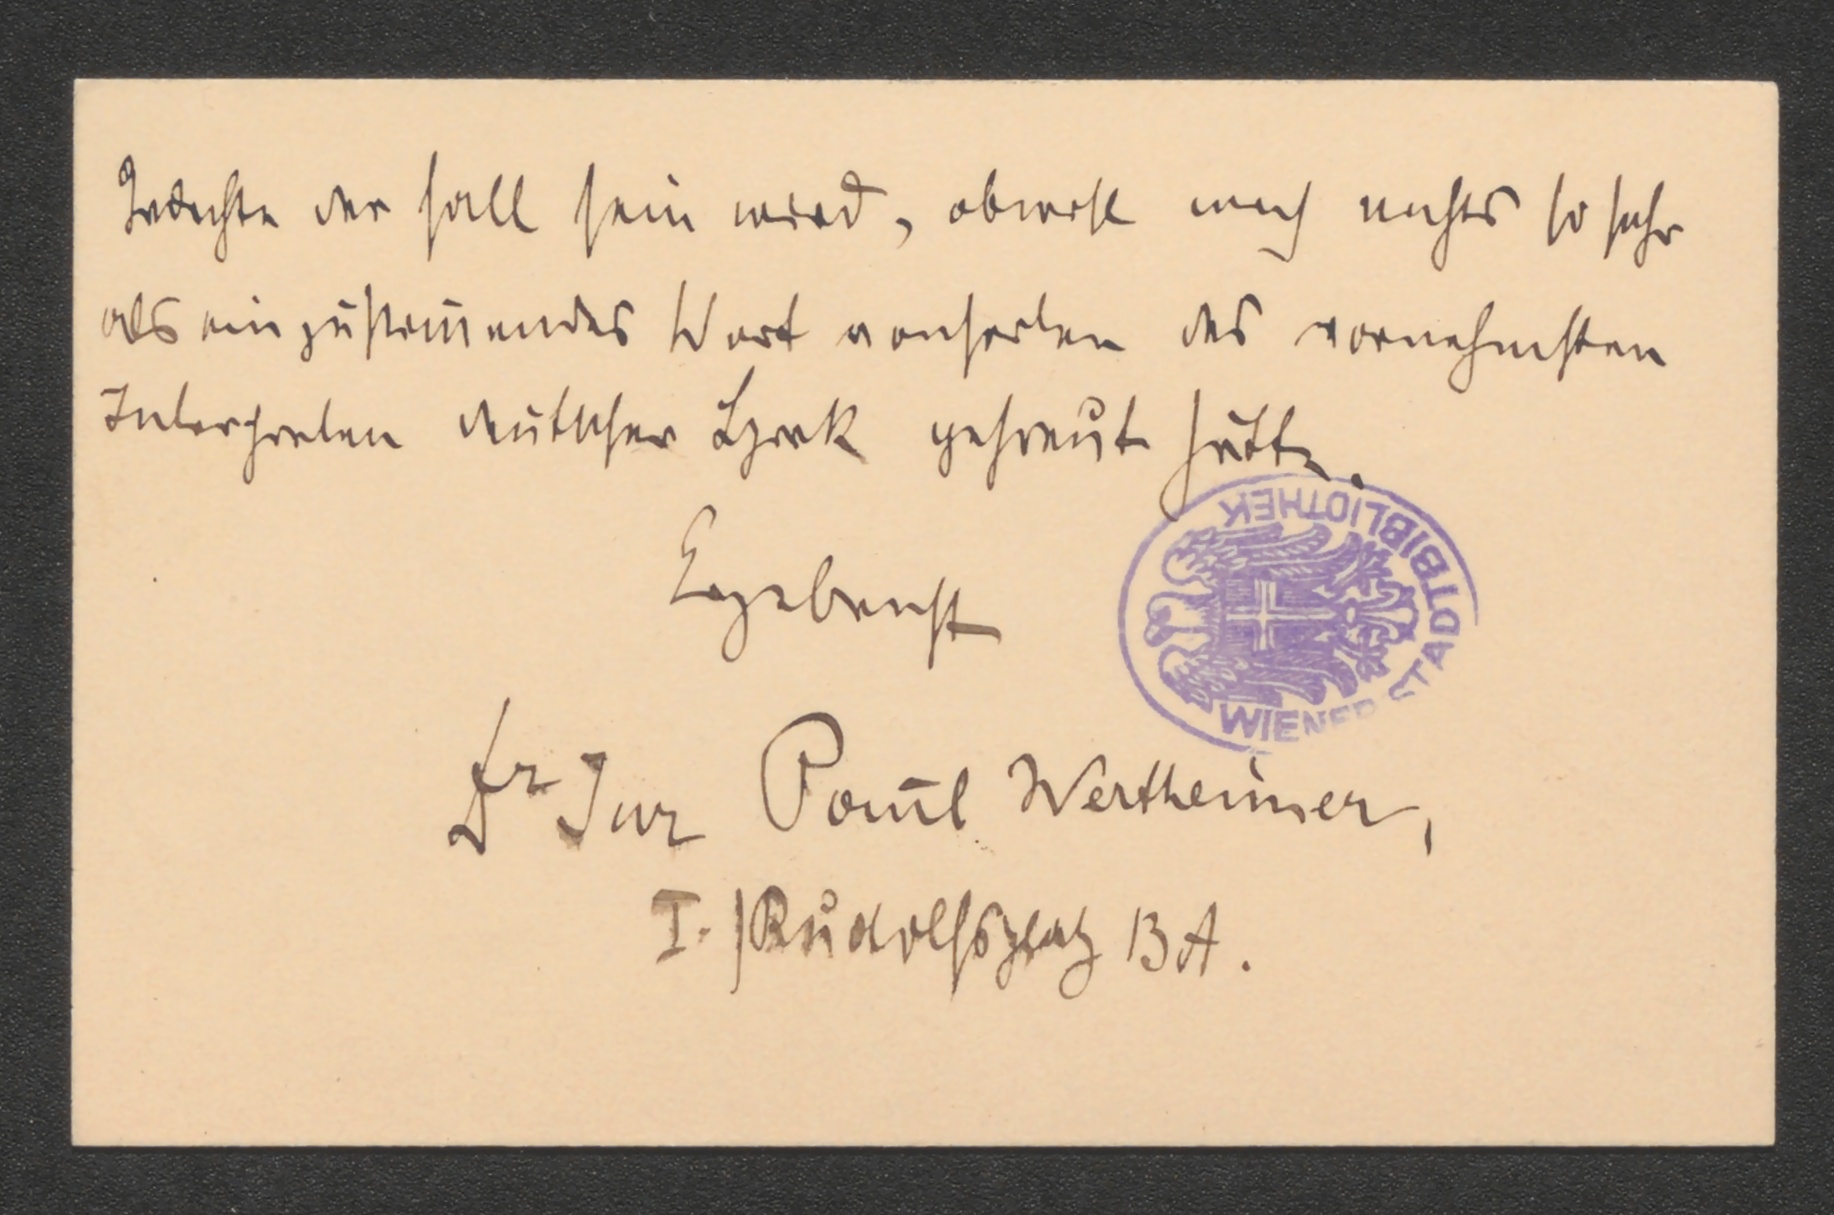 Gedichte der Fall sein wird, obwohl mich nichts so sehr
als ein zustim̅endes Wort vonseiten des vornehmsten
Interpreten deutscher Lyrik gefreut hätte.
Ergebenst
Dr Jur Paul Wertheimer,
I. Rudolfsplatz 13 A.
WIENER STADTBIBLIOTHEK